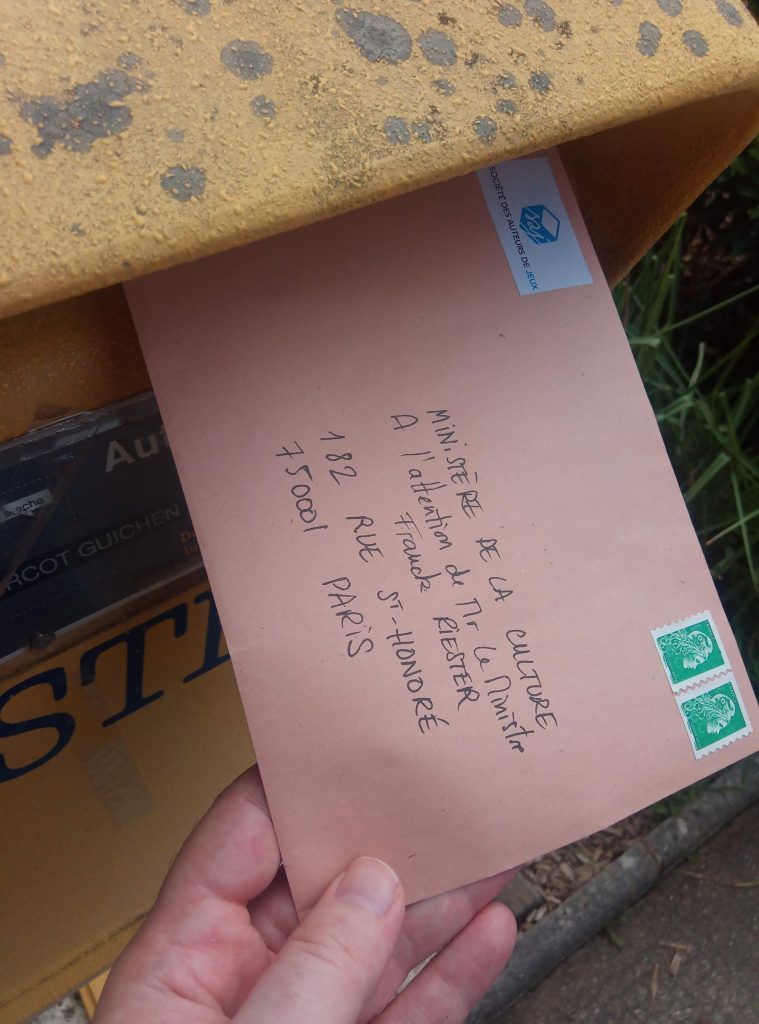 SOCIÉTÉ DES AUTEURS DE JEUX
saj
MINISTÈRE DE LA CULTURE
A l'attention de Mr le Ministre
Franck RIESTER
182 RUE ST-HONORÉ
75001 PARIS
Aut
ache
ARCOT GUICHEN
STE